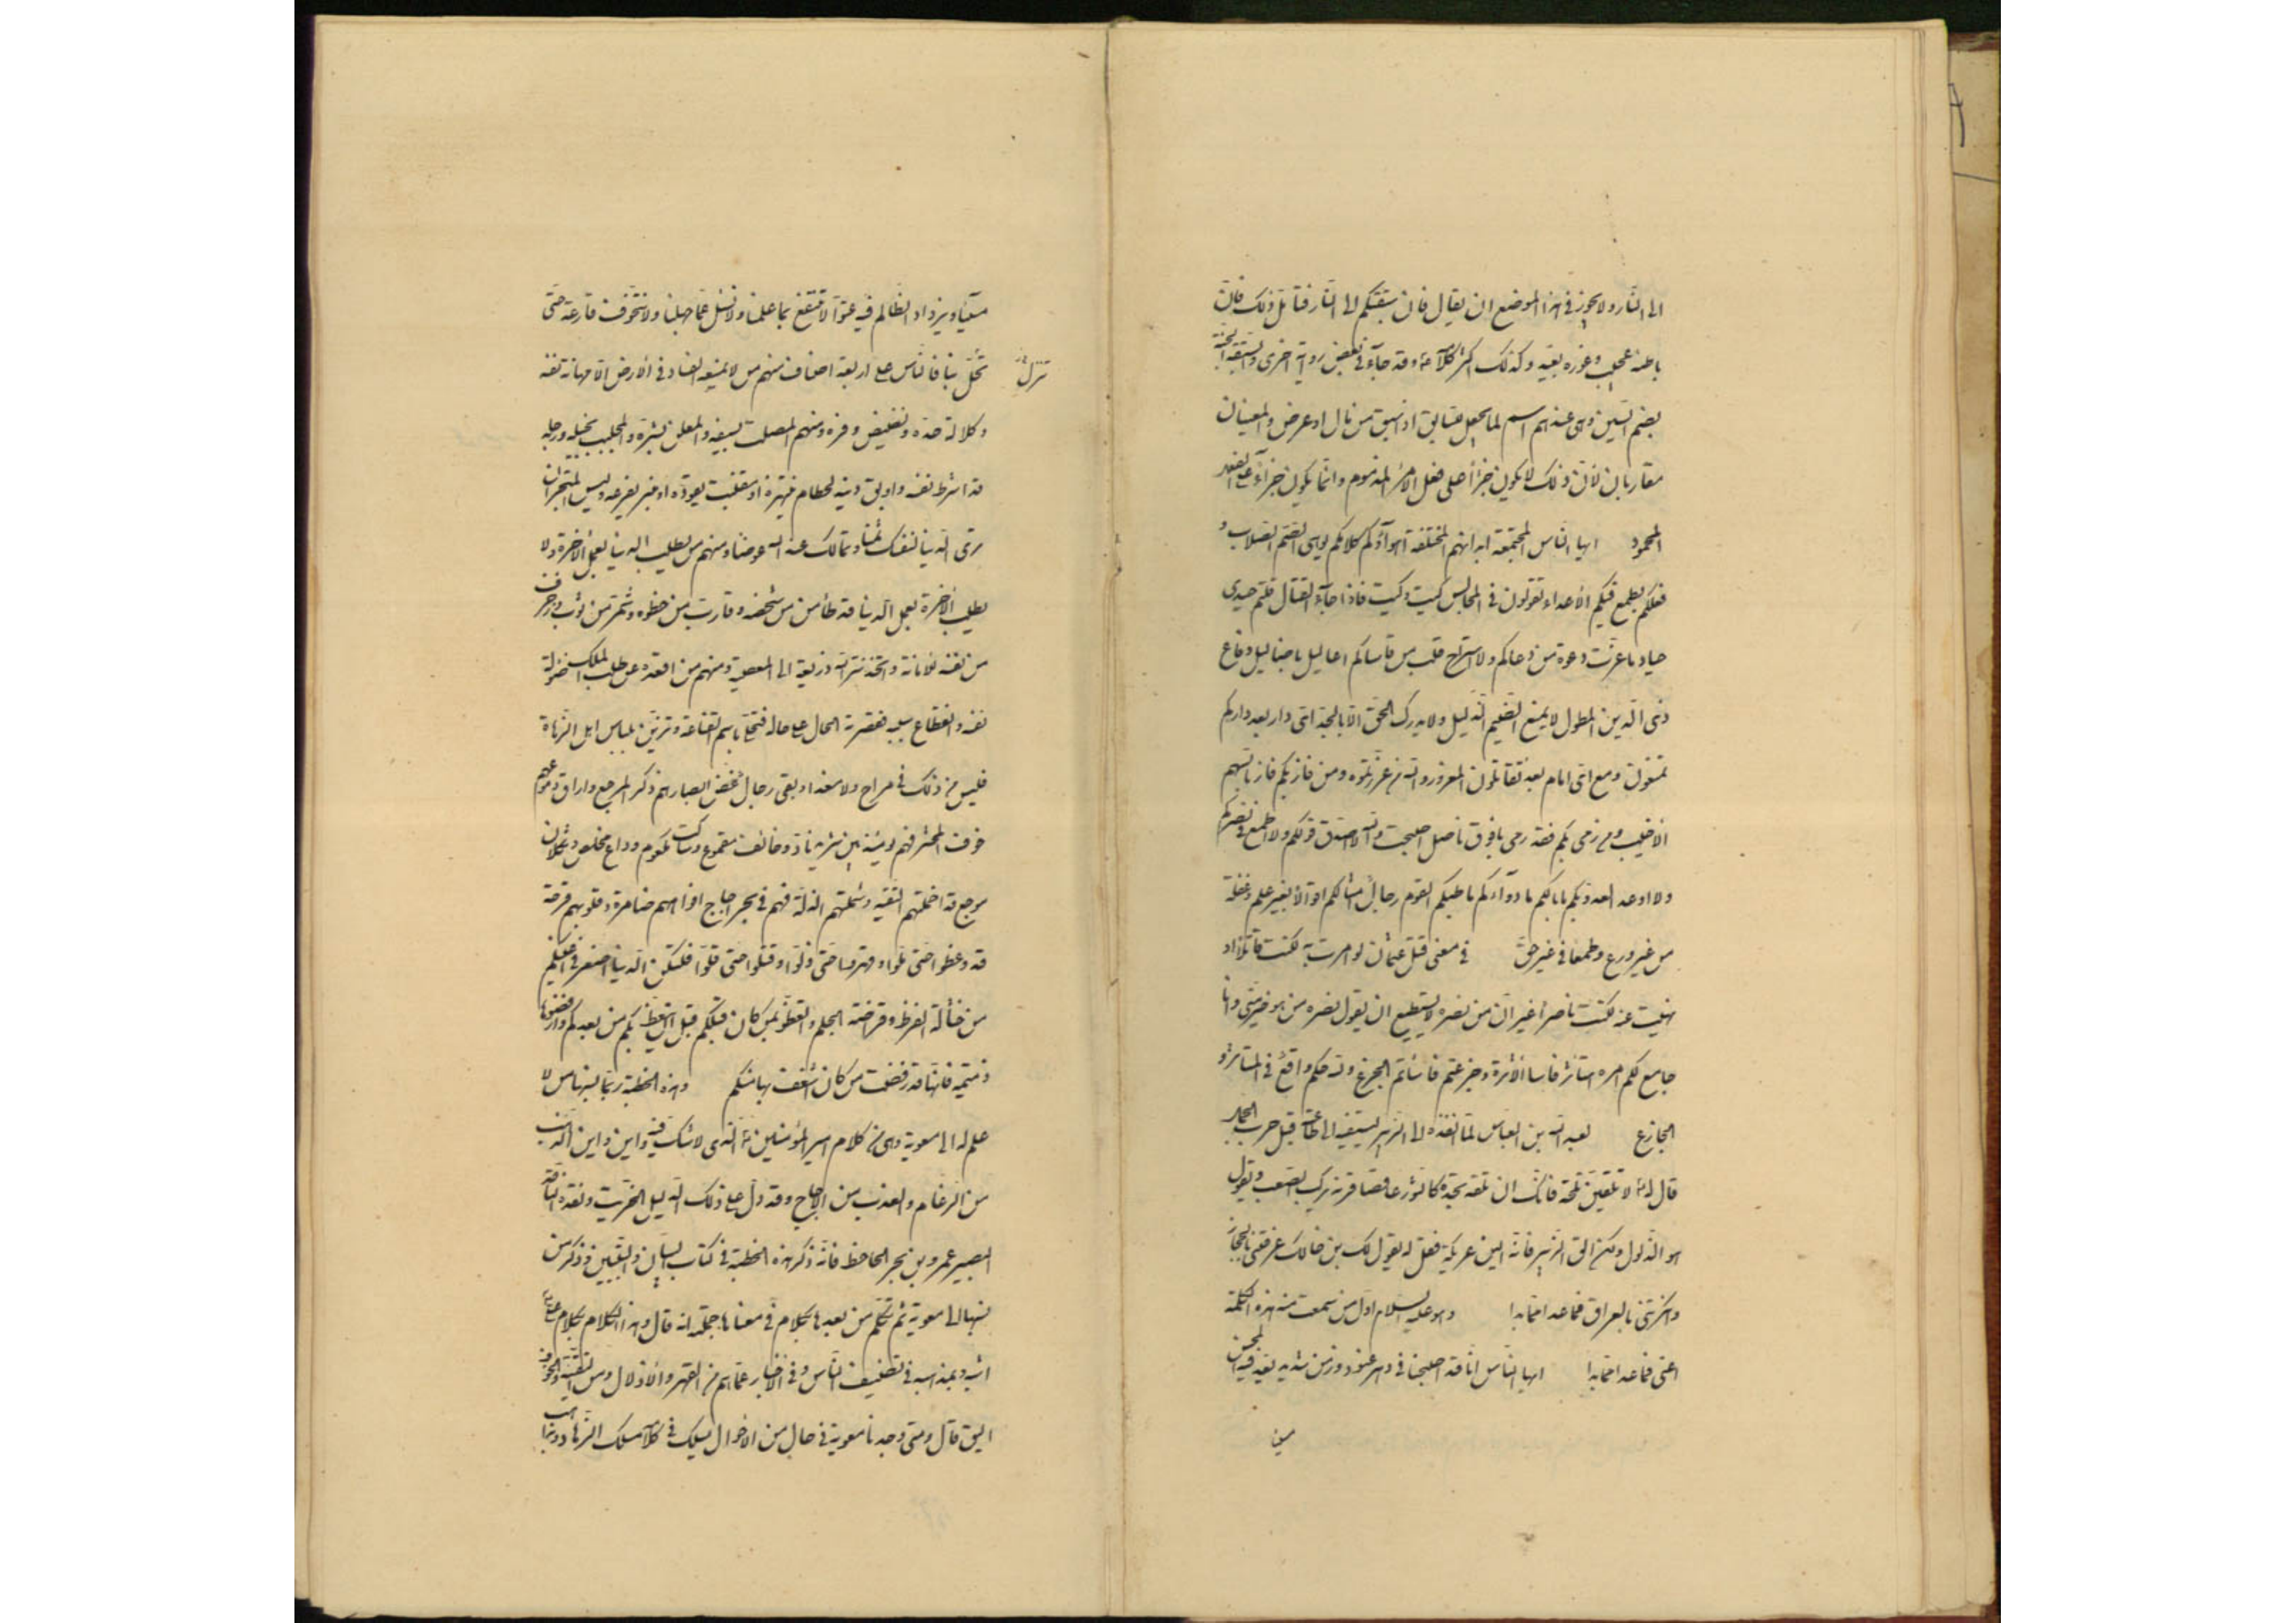 الى النار ولا يجوز في هذا الموضع ان يقال فان سبقتكم الى النار فتامل ذلك فان
باطنه عجيب وغوره بعيد وكذلك اكثر كلامه ع وقد جاء في بعض رواية اخرى والسبقة الجنة
بضم السين وهي عندهم اسم لما يجعل للسابق اذا سبق من مال او عرض والمعنيان
متقاربان لان ذلك لا يكون جزاء على فعل الامر المذموم وانما يكون جزاء على الامر
المحمود ايها الناس المجتمعة ابدانهم المختلفة اهواؤكم كلامكم يوهي الصم الصلاب و
فعلكم يطمع فيكم الاعداء تقولون في المجالس كيت وكيت فاذا جاء القتال قلتم حيدي
حياد ما عزت دعوة من دعاكم ولا استراح قلب من قاساكم اعاليل باضاليل دفاع
ذي الدين المطول لا يمنع الضيم الذليل ولا يدرك الحق الا بالجد اي دار بعد داركم
تمنعون ومع اي امام بعدي تقاتلون المغرور والله من غررتموه ومن فاز بكم فاز بالسهم
الاخيب ومن رمى بكم فقد رمى بافوق ناصل اصبحت والله لا اصدق قولكم ولا اطمع في نصركم
ولا اوعد العدو بكم ما بالكم ما دواؤكم ما طبكم القوم رجال امثالكم اقوالا بغير علم وغفلة
من غير ورع وطمعا في غير حق في معنى قتل عثمان لو امرت به لكنت قاتلا او
نهيت عنه لكنت ناصرا غير ان من نصره لا يستطيع ان يقول نصره من هو خير مني وانا
جامع لكم امره استاثر فاساء الاثرة وجزعتم فاساتم الجزع ولله حكم واقع في المستاثر و
الجازع لعبد الله بن العباس لما انفذه الى الزبير يستفيئه الى طاعته قبل حرب الجمل
قال له ع لا تلقين طلحة فانك ان تلقه تجده كالثور عاقصا قرنه يركب الصعب ويقول
هو الذلول ولكن الق الزبير فانه الين عريكة فقل له يقول لك ابن خالك عرفتني بالحجاز
وانكرتني بالعراق فما عدا مما بدا وهو عليه السلام اول من سمعت منه هذه الكلمة
اعني فما عدا مما بدا ايها الناس انا قد اصبحنا في دهر عنود وزمن شديد يعد فيه المحسن
مسيئا
مسيئا ويزداد الظالم فيه عتوا لا ننتفع بما علمنا ولا نسئل عما جهلنا ولا نتخوف قارعة حتى
تحل بنا فالناس على اربعة اصناف منهم من لا يمنعه الفساد في الارض الا مهانة نفسه
تنزل
وكلالة حده ونضيض وفره ومنهم المصلت لسيفه والمعلن بشره والمجلب بخيله ورجله
قد اشرط نفسه واوبق دينه لحطام ينتهزه او مقنب يقوده او منبر يفرعه ولبئس المتجر ان
ترى الدنيا لنفسك ثمنا ومما لك عند الله عوضا ومنهم من يطلب الدنيا بعمل الاخرة ولا
يطلب الاخرة بعمل الدنيا قد طامن من شخصه وقارب من خطوه وشمر من ثوبه وزخرف
من نفسه للامانة واتخذ ستر الله ذريعة الى المعصية ومنهم من اقعده عن طلب الملك ضؤلة
نفسه وانقطاع سببه فقصرته الحال على حاله فتحلى باسم القناعة وتزين بلباس اهل الزهادة
فليس من ذلك في مراح ولا مغدا وبقي رجال غض ابصارهم ذكر المرجع واراق دموعهم
خوف المحشر فهم بين شريد ناد وخائف مقموع وساكت مكعوم وداع مخلص وثكلان
موجع قد اخملتهم التقية وشملتهم الذلة فهم في بحر اجاج افواههم ضامزة وقلوبهم قرحة
قد وعظوا حتى ملوا وقهروا حتى ذلوا وقتلوا حتى قلوا فلتكن الدنيا اصغر في اعينكم
من حثالة القرظ وقراضة الجلم واتعظوا بمن كان قبلكم قبل ان يتعظ بكم من بعدكم وارفضوها
ذميمة فانها قد رفضت من كان اشغف بها منكم وهذه الخطبة ربما نسبها من لا
علم له الى معوية وهي من كلام امير المؤمنين ع الذي لا شك فيه واين الذهب
من الرغام والعذب من الاجاج وقد دل على ذلك الدليل الخريت ونقده الناقد
البصير عمرو بن بحر الجاحظ فانه ذكر هذه الخطبة في كتاب البيان والتبيين وذكر من
نسبها الى معوية ثم تكلم من بعدها بكلام في معناها جملته انه قال وهذا الكلام بكلام علي ع
اشبه وبمذهبه في تصنيف الناس وفي الاخبار عما هم من القهر والاذلال ومن التقية والخوف
اليق قال ومتى وجدنا معوية في حال من الاحوال يسلك في كلامه مسلك الزهاد ومذاهب